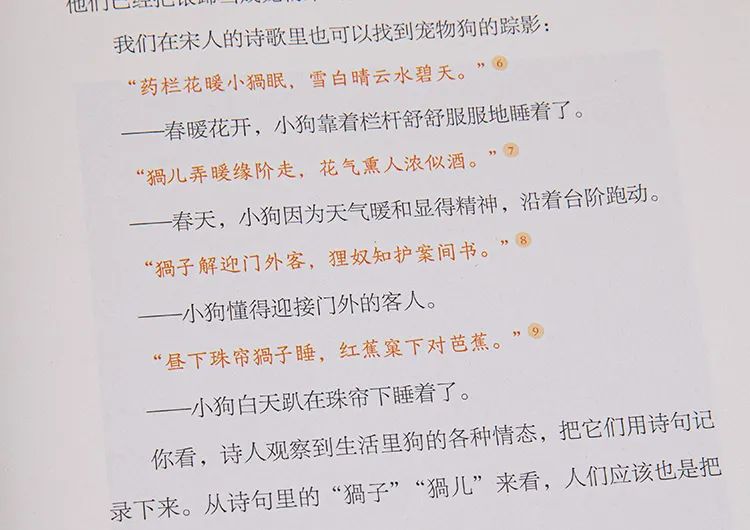 我们在宋人的诗歌里也可以找到宠物狗的踪影：
“药栏花暖小猧眠，雪白晴云水碧天。”6
——春暖花开，小狗靠着栏杆舒舒服服地睡着了。
“猧儿弄暖缘阶走，花气熏人浓似酒。”7
——春天，小狗因为天气暖和显得精神，沿着台阶跑动。
“猧子解迎门外客，狸奴知护案间书。”8
——小狗懂得迎接门外的客人。
“昼下珠帘猧子睡，红蕉窠下对芭蕉。”9
——小狗白天趴在珠帘下睡着了。
你看，诗人观察到生活里狗的各种情态，把它们用诗句记
录下来。从诗句里的“猧子”“猧儿”来看，人们应该也是把